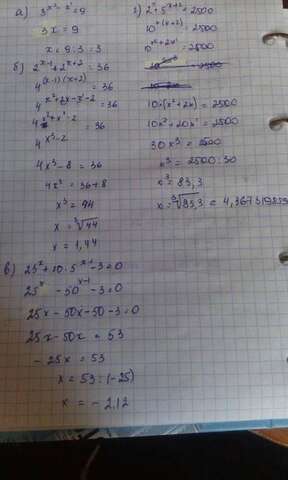 а) 3^{x²-x}=9
3x = 9
x = 9:3 = 3
б) 2^{x-1}+2^{x+2} = 36
4^{(x-1)(x+2)} = 36
4^{x²+2x-x-2} = 36
4^{x²+x-2} = 36
4^{x³-2}
4x³-8 = 36
4x³ = 36+8
x³ = 44
x = ³√44
x = 1,44
в) 25^x+10·5^{x-1}-3=0
25^x -50^{x-1} -3=0
25x-50x-50-3=0
25x-50x = 53
-25x = 53
x = 53:(-25)
x = -2,12
г) 2^x·5^{x+2}=2500
10^{x(x+2)} = 2500
10^{x²+2x} = 2500
10x(x²+2x) = 2500
10x²+20x = 2500
30x³ = 2500
x³ = 2500:30
x³ = 83,3
x = ³√83,3 = 4,367